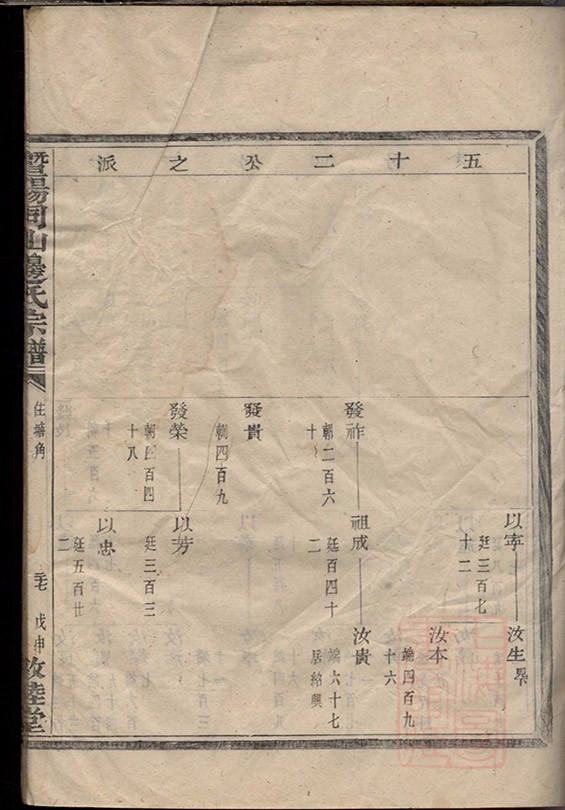 五十二公之派
以寕
廷三百七
十二
汝生
汝本
端四百九
十六
發祚
朝二百六
十
祖成
廷百四十
二
汝貴
端六十七
居紹興
發貴
朝四百九
發榮
朝四百四
十八
以芳
廷三百三
以忠
廷五百廿
二
暨陽同山邊氏宗譜
住塘角
戊申
敦睦堂